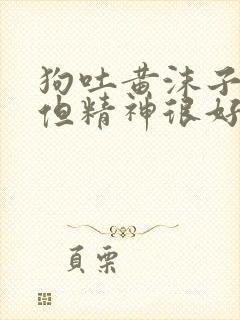 狗吐黄沫子
但精神很好
頁栗